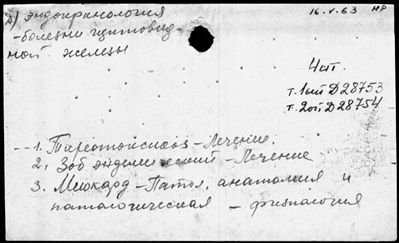 2) эндокринология
16.V.63 НР
- болезни щитовид
ной железы
4 шт
т.1ый Д28753
т.2ой Д28754
1. Тиреотоксикоз - Лечение.
2. Зоб эндемический - Лечение
3. Миокард - Патол. анатомия и
патологическая - физиология